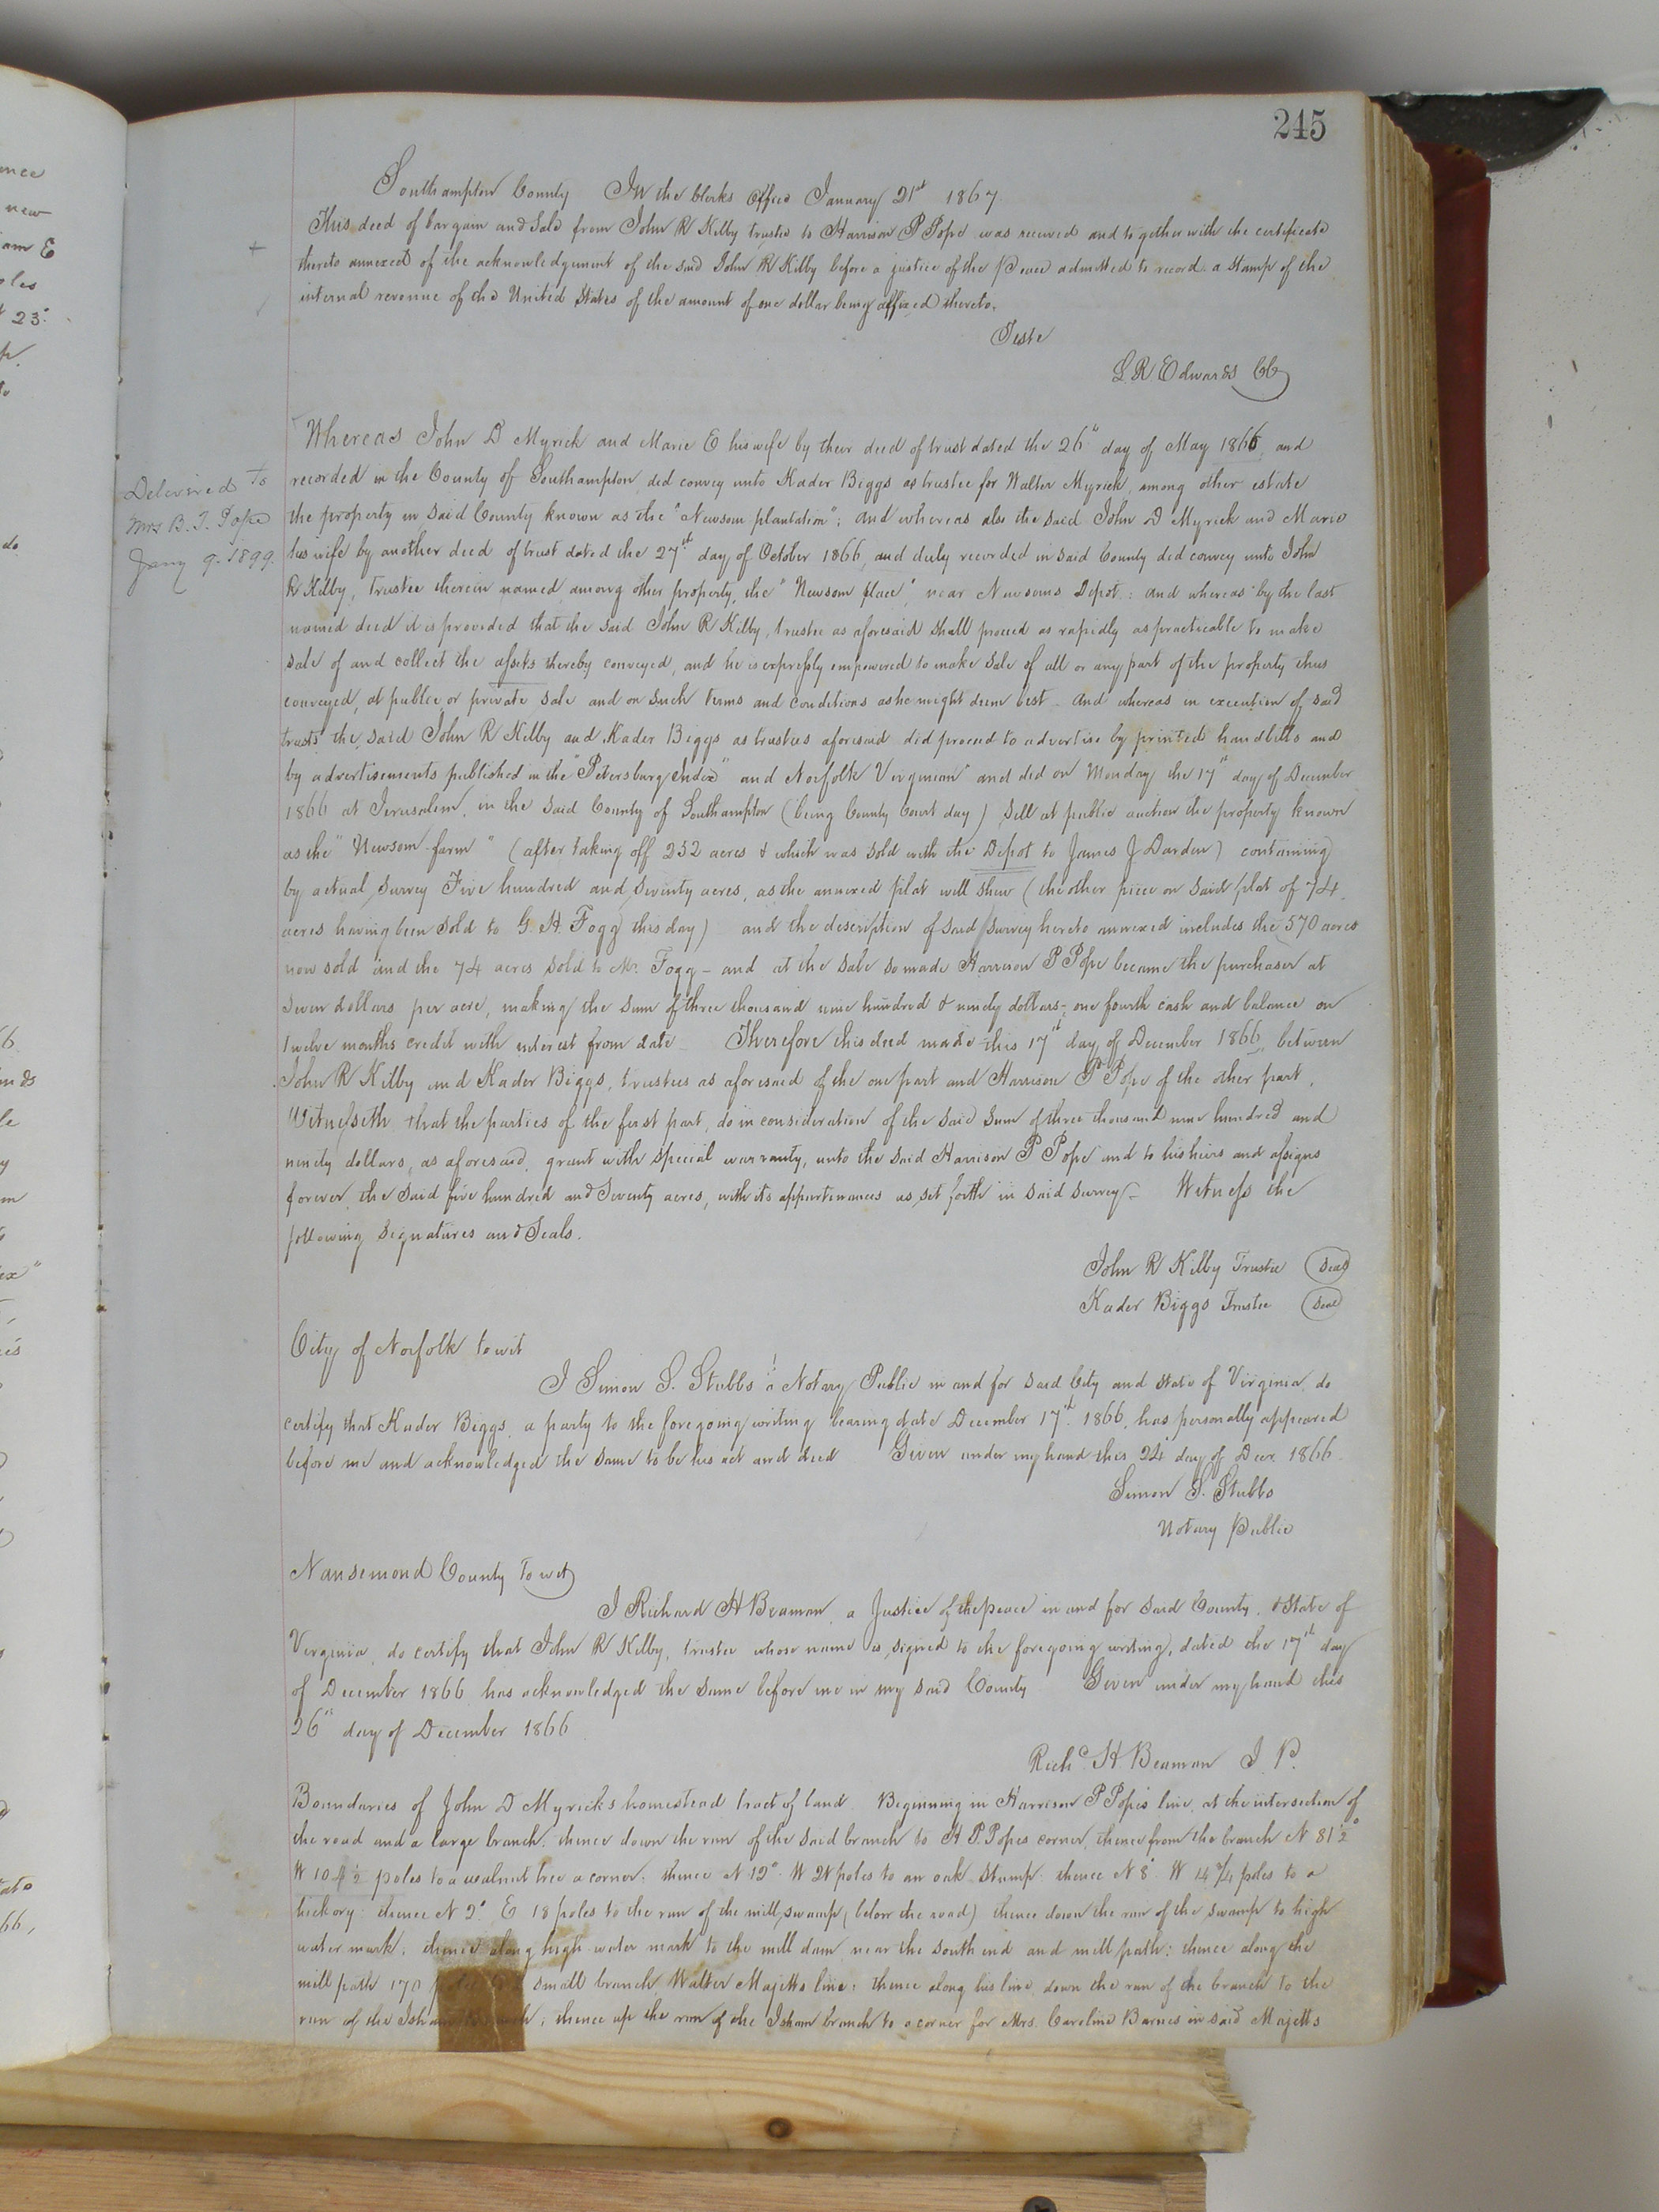 245
Southampton County In the Clerks Office January 21st 1867
This deed of bargain and Sale from John R Kilby trustee to Harrison P Pope was received and together with the certificate
thereto annexed of the acknowledgement of the said John R Kilby before a justice of the Peace admitted to record a Stamp of the
internal revenue of the United States of the amount of one dollar being affixed thereto.
Teste
L R Edwards CC
Delivered To
Mrs B. T. Pope
Jany 9. 1899.
Whereas John D Myrick and Marie E his wife by their deed of trust dated the 26th day of May 1866, and
recorded in the County of Southampton did convey unto Kader Biggs as trustee for Walter Myrick, among other estate
the property in said County known as the "Newsom plantation"; and whereas also the said John D Myrick and Marie
his wife by another deed of trust dated the 27th day of October 1866, and duly recorded in said County did convey unto John
R Kilby, Trustee therein named among other property, the "Newsom place", near Newsoms Depot: and whereas by the last
named deed it is provided that the said John R Kilby, trustee as aforesaid shall proceed as rapidly as practicable to make
sale of and collect the assets thereby conveyed, and he is expressly empowered to make sale of all or any part of the property thus
conveyed, at public or private sale and on such terms and conditions as he might deem best. And whereas in execution of said
trusts the said John R Kilby and Kader Biggs as trustees aforesaid did proceed to advertise by printed handbills and
by advertisements published in the "Petersburg Index" and Norfolk Virginian" and did on Monday the 17th day of December
1866 at Jerusalem, in the said County of Southampton (being County Court day) sell at public auction the property known
as the "Newsom farm" (after taking off 252 acres & which was sold with the Depot to James J Darden) containing
by actual survey Five hundred and seventy acres, as the annexed plat will shew (the other piece on said plat of 74
acres having been sold to G. H. Fogg this day) and the description of said survey hereto annexed includes the 570 acres
now sold and the 74 acres sold to Mr. Fogg - and at the sale so made Harrison P Pope became the purchaser at
seven dollars per acre, making the sum of three thousand nine hundred & ninety dollars - one fourth cash and balance on
Twelve months credit with interest from date - Therefore this deed made this 17th day of December 1866, between
John R Kilby and Kader Biggs, trustees as aforesaid of the one part and Harrison P Pope of the other part,
Witnesseth that the parties of the first part, do in consideration of the said sum of three thousand nine hundred and
ninety dollars, as aforesaid, grant with special warranty, unto the said Harrison P Pope and to his heirs and assigns
forever the said five hundred and Seventy acres, with its appurtenances as set forth in said survey - Witness the
following signatures and Seals.
John R Kilby Trustee (Seal)
Kader Biggs Trustee (Seal)
City of Norfolk to wit
I Simon S. Stubbs a Notary Public in and for said City and State of Virginia, do
certify that Kader Biggs, a party to the foregoing writing bearing date December 17th 1866, has personally appeared
before me and acknowledged the same to be his act and deed Given under my hand this 24 day of Decr 1866
Simon S. Stubbs
Notary Public
Nansemond County To wit
I Richard H Beaman a Justice of the peace in and for said County, & State of
Virginia, do certify that John R Kilby, trustee whose name is signed to the foregoing writing, dated the 17th day
of December 1866 has acknowledged the same before me in my said County Given under my hand this
26th day of December 1866
Richd H Beaman J. P.
Boundaries of John D Myricks homestead tract of land Beginning in Harrison P Popes line, at the intersection of
the road and a large branch, thence down the run of the said branch to H P. Popes corner, thence from the branch N 81½°
W 104½ poles to a walnut tree a corner, thence N 12° W 24 poles to an oak Stump thence N 8° W 14¾ poles to a
hickory thence N 2° E 18 poles to the run of the mill swamp (below the road) thence down the run of the swamp to high
water mark, thence along high water mark to the mill dam near the south end and mill path: thence along the
mill path 170 small branch, Walter Majetts line: thence along his line down the run of the branch to the
run of the Isham branch, thence up the run of the Isham branch to a corner for Mrs. Caroline Barnes in said Majetts